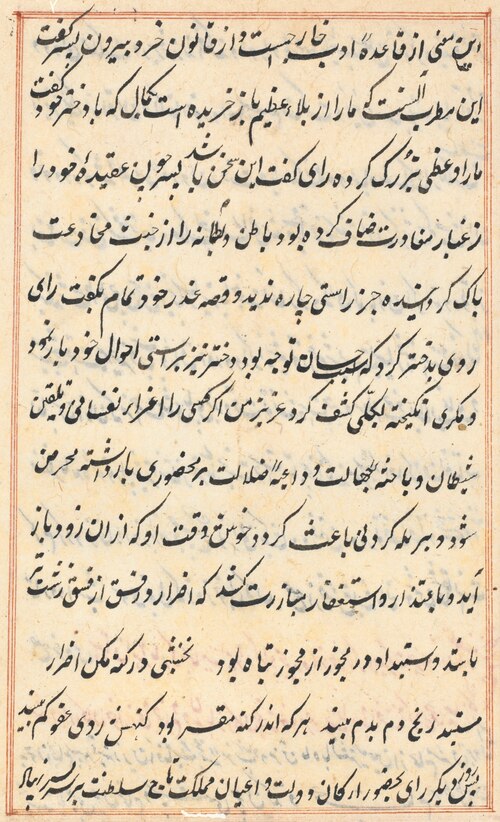 این معنی از قاعدهٔ ادب خارجست و از قانون خرد بیرون پسر گفت
این مطرب آنست که ما را از بلاء عظیم باز خریده است بکمال که با دختر خود گفت
ما را وعظی بزرگ کرده رای گفت این سخن باشد پسر چون عقیدهٔ خود را
ز غبار مغاورت صاف کرده بود و باطن را از خبث مخادعت
پاک گردانیده جز راستی چاره ندید و قصه غدر خود تمام بگفت رای
روی بدختر کرد که سبب حسان توجه بود دختر نیز براستی احوال خود باز نمود
و مکری انگیخته بکلّی کشف کرد عزیز من اگر کسی را اغرار نفسانی و تلقین
شیطان و باحثهٔ جهالت و داعیهٔ ضلالت بر محضوری بار داشته محرمن
شود و بر بله کردنی باعث گردد خوش وقت او که از ان زود باز
آید و باعتذار و استغفار مبادرت کند که اصرار و افسق از فسق زشت تر
باشد و استبداد در فجور از فجور تباه بود نخشبی در گنه مکن اصرار
مستبد رنج دم بدم بیند هر که اندر گنه مقر بود گنهش روی عفو کم بیند
پس روز دیگر رای بحضور ارکان دولت و اعیان مملکت تاج سلطنت بر سر پسر نهاد